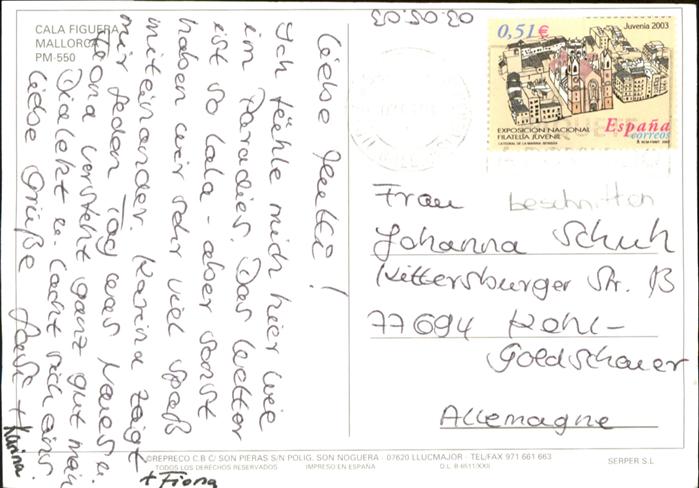 CALA FIGUERA
MALLORCA
PM-550
03.05.03
Liebe Mutti!
Ich fühle mich hier wie
im Paradies. Das Wetter
ist so lala - aber sonst
haben wir sehr viel Spaß
miteinander. Karina zeigt
mir jeden Tag was Neues u.
Fiona versteht ganz gut mein
Dialekt u. lacht sich eins.
Liebe Grüße
+ Karina
+ Fiona
0,51€
Juvenia 2003
EXPOSICIÓN NACIONAL
FILATELIA JUVENIL
España
correos
Frau
beschnitten
Johanna Schuh
Kittersburger Str. 13
77694 Kehl-
Goldscheuer
Allemagne
©REPRECO C.B C/ SON PIERAS S/N POLIG. SON NOGUERA · 07620 LLUCMAJOR · TEL/FAX 971 661 663
TODOS LOS DERECHOS RESERVADOS IMPRESO EN ESPAÑA D.L. B-6511/XXII
SERPER S.L